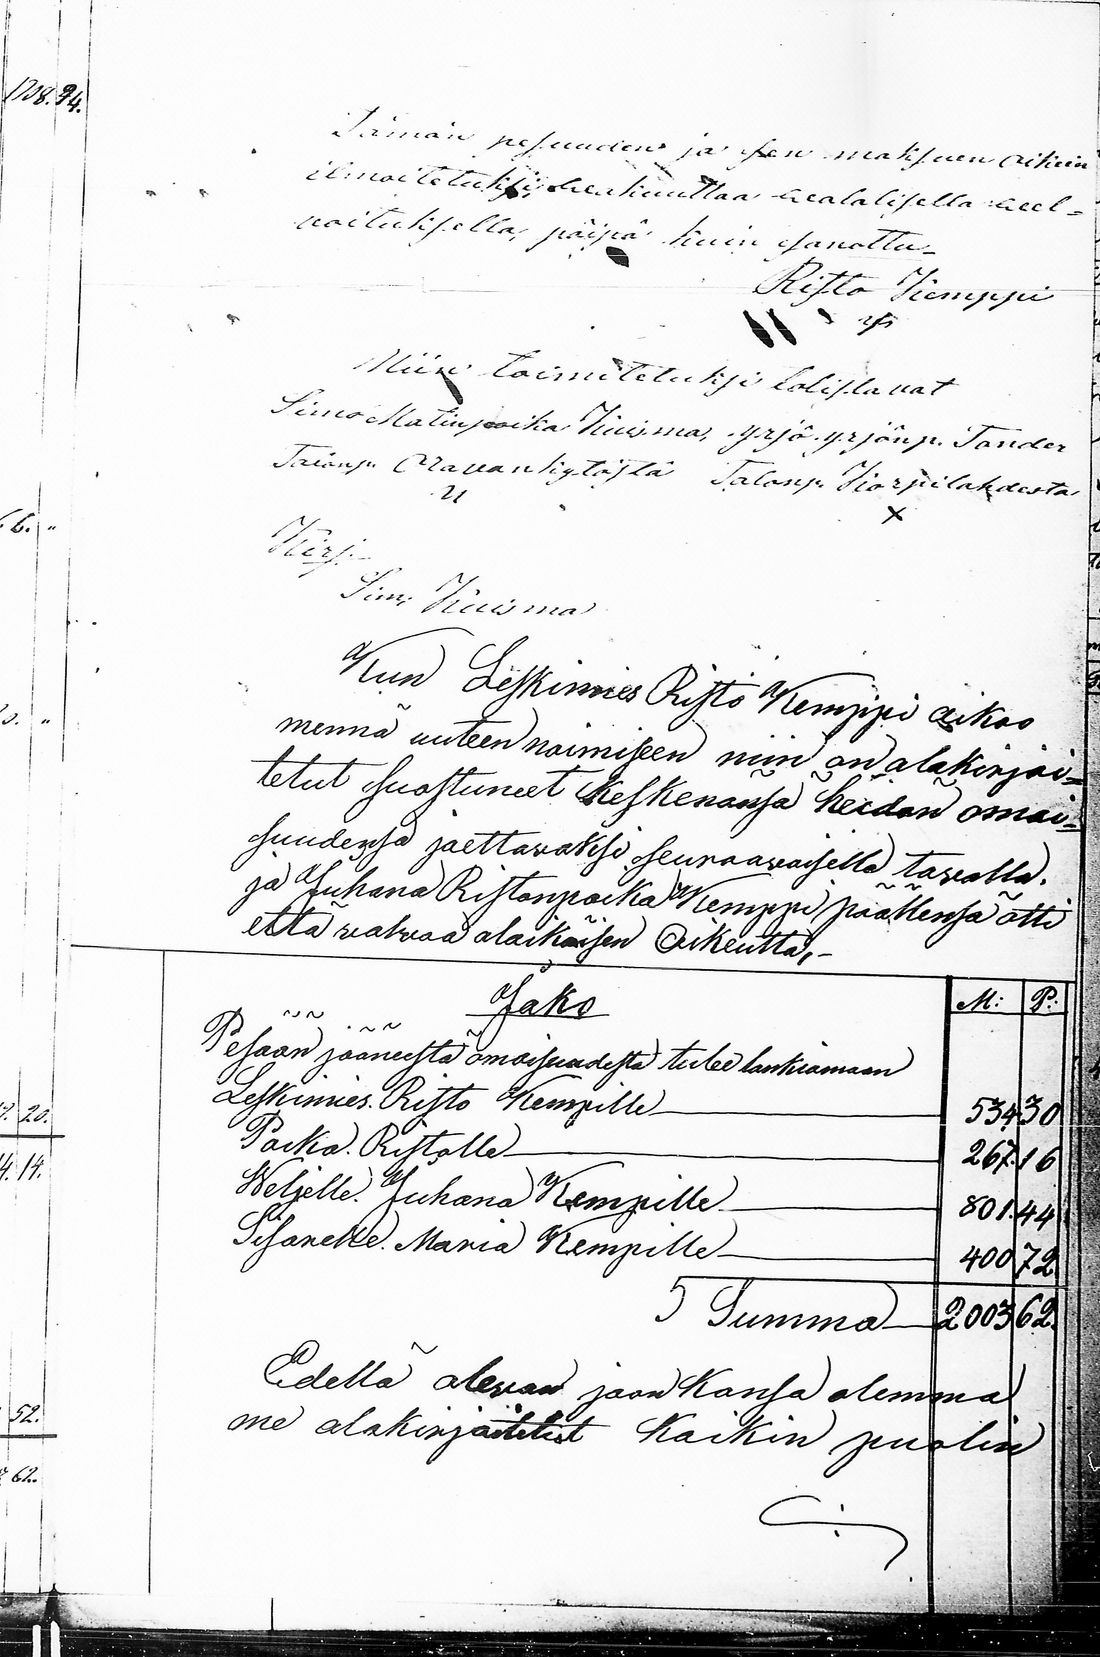 1708.94.
Tämän pesuuden ja sen maksuen oikein
ilmoitetuksi, wakuuttaa walalisella wel=
woituksella, päivä kuin sanottu_
Risto Kemppi
Niin toimitetuksi todistavat
Simo Matinpoika Kuisma, Yrjö Yrjönp. Tander
Talonp. Oravankytöstä Talonp. Korpilahdesta
x
Kirj.
Simo Kuisma
Kun Leskimies Risto Kemppi aikoo
mennä uuteen naimiseen niin on alakirjoi=
tetut suostuneet keskenänsä heidän omai=
suudensa jaettavaksi seuraavaisella tavalla.
ja Juhana Ristonpoika Kemppi päällensä otti
että valvoa alaikäisen oikeutta,-
Jako
M: P:
Pesään jääneestä omaisuudesta tulee lankiamaan
Leskimies. Risto Kempille 534 30
Poika. Ristolle 267. 16
Weljelle. Juhana Kempille 801. 44
Sisarelle. Maria Kempille 400 72
Summa 2003 62.
Edellä olevan jaon kansa olemma
me alakirjoitetut kaikin puolin
6. "
"
20.
14.
52.
62.